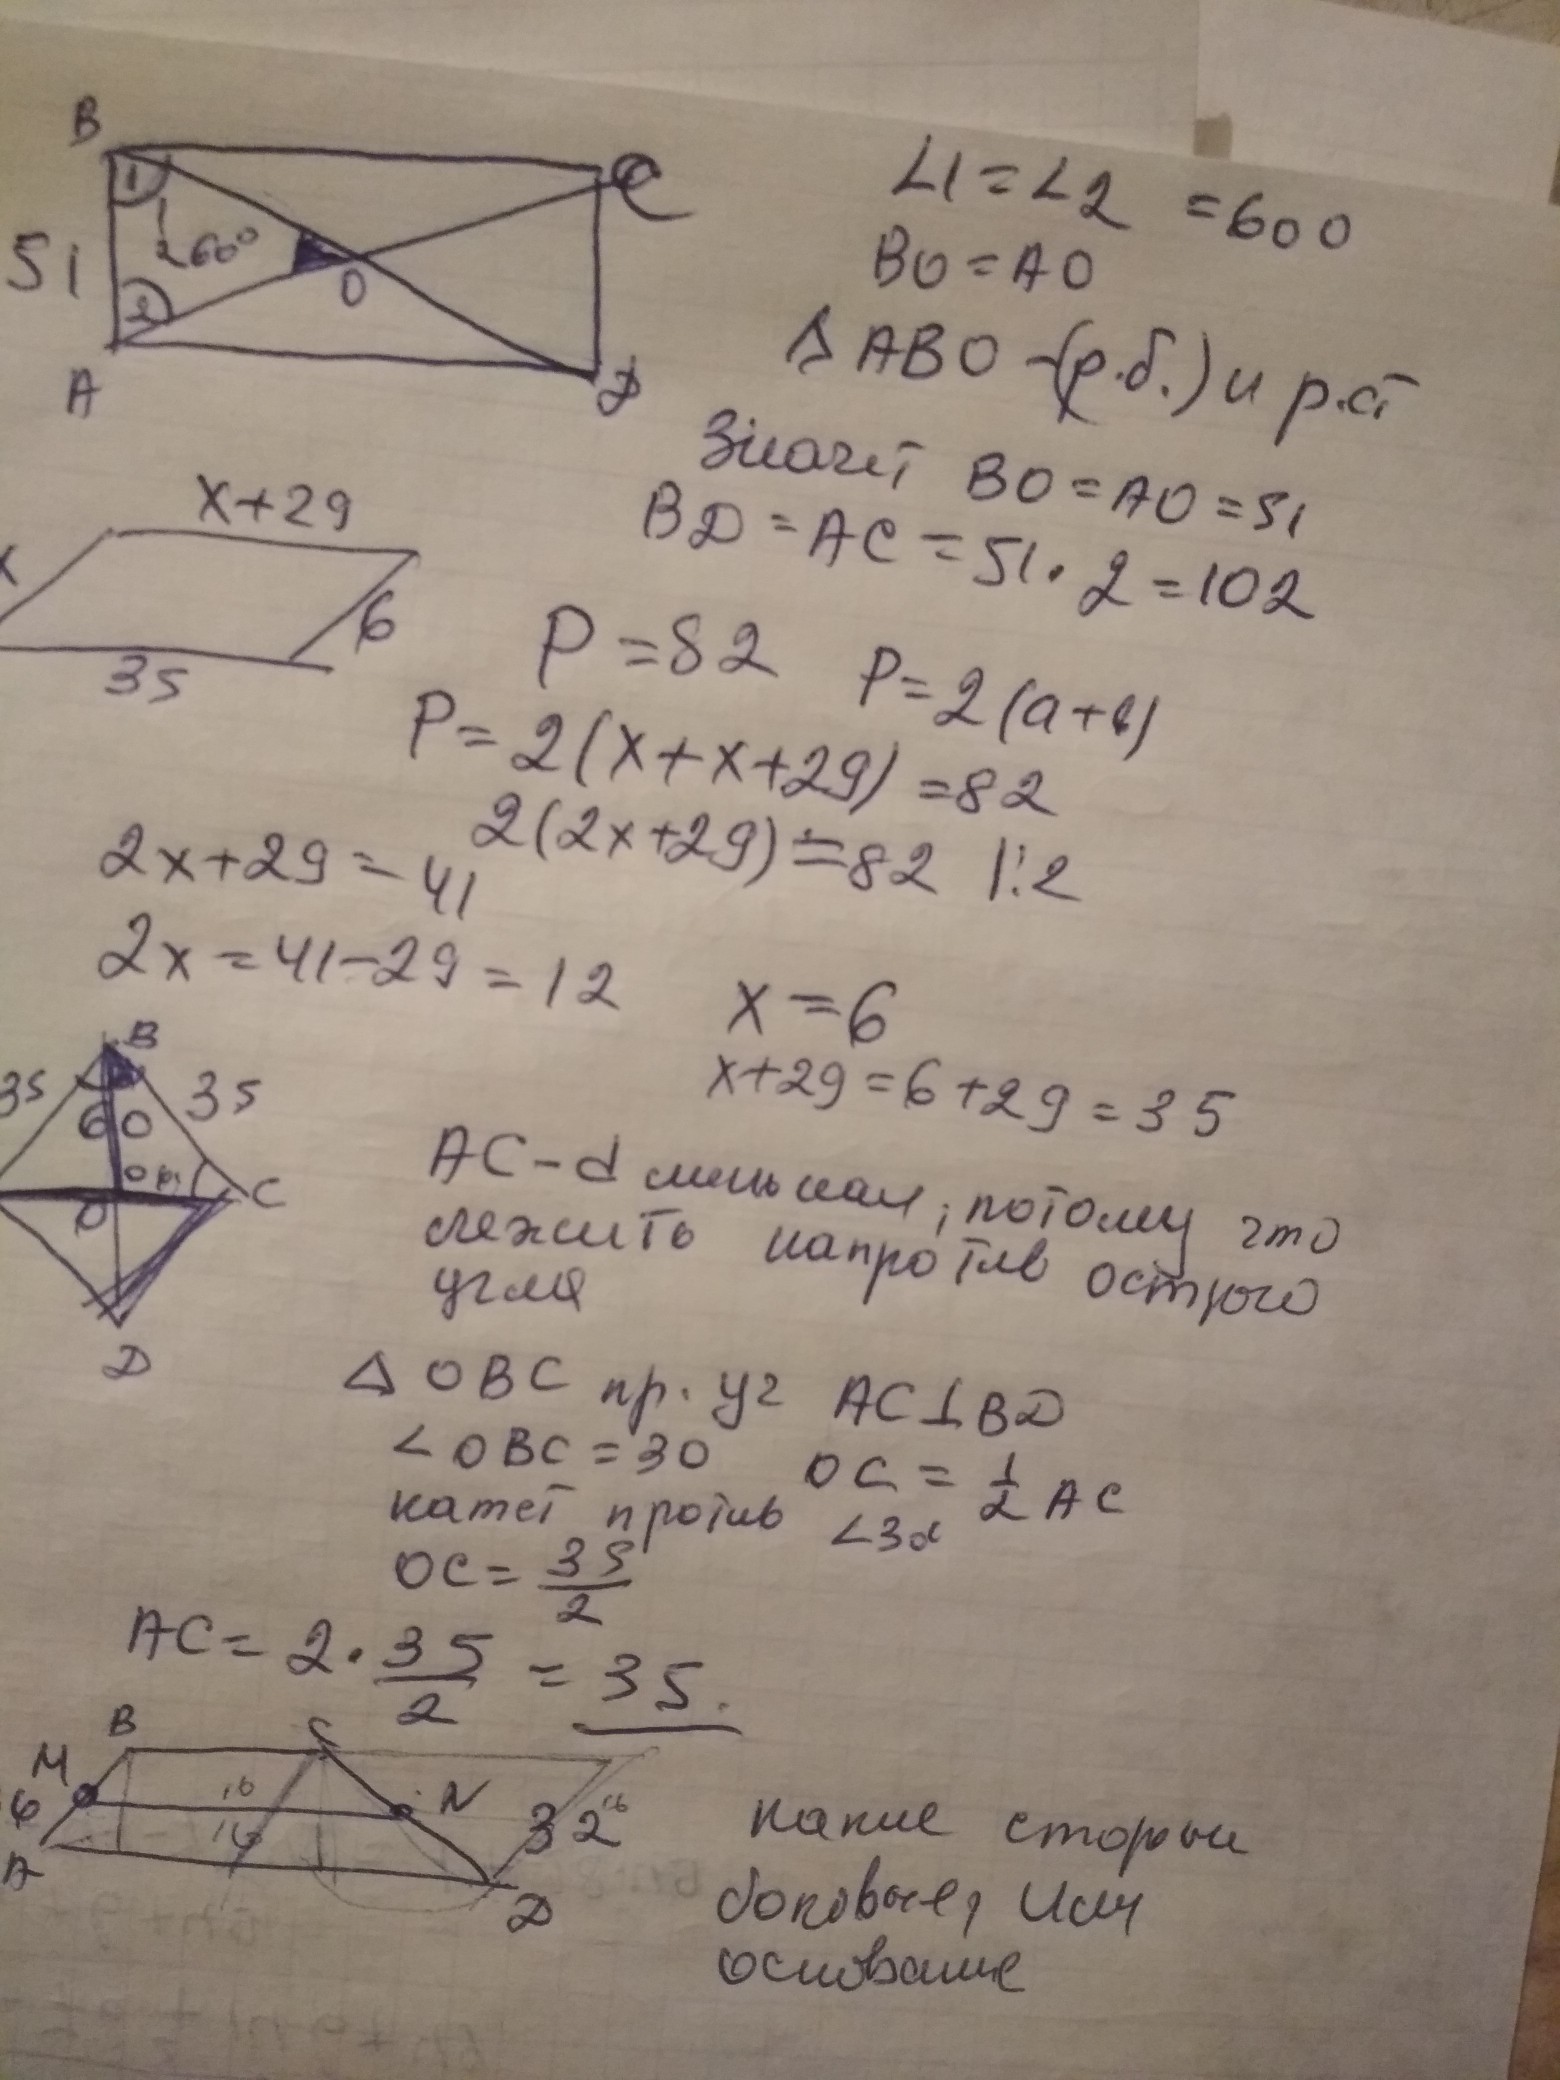 B
C
1
2 60°
51
O
2
A
D
∠1 = ∠2 = 60°
BO = AO
Δ ABO – (р.б.) и р.ст
Значит BO = AO = 51
BD = AC = 51 · 2 = 102
x+29
x
6
35
P = 82 P = 2(a+b)
P = 2(x+x+29) = 82
2(2x+29) = 82 |:2
2x+29 = 41
2x = 41-29 = 12 x = 6
x+29 = 6+29 = 35
B
35 35
60
O
C
D
AC – d меньшая, потому что
лежить напротив острого
угля
Δ OBC пр. уг AC⊥BD
∠OBC = 30 OC = 1/2 AC
катет против ∠30
OC = 35/2
AC = 2 · 35/2 = 35.
B C
M
6
16
N
16
32
A
D
какие стороны
боковые, или
основание